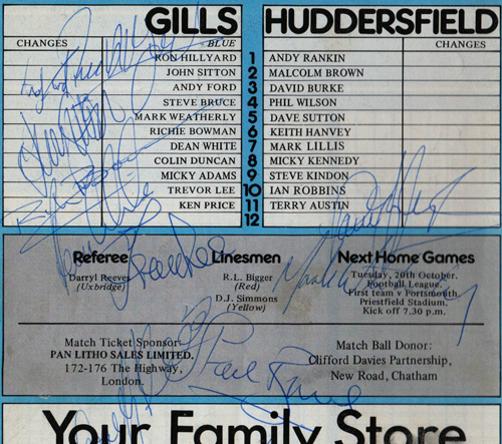 GILLS HUDDERSFIELD
CHANGES BLUE CHANGES
RON HILLYARD 1 ANDY RANKIN
JOHN SITTON 2 MALCOLM BROWN
ANDY FORD 3 DAVID BURKE
STEVE BRUCE 4 PHIL WILSON
MARK WEATHERLY 5 DAVE SUTTON
RICHIE BOWMAN 6 KEITH HANVEY
DEAN WHITE 7 MARK LILLIS
COLIN DUNCAN 8 MICKY KENNEDY
MICKY ADAMS 9 STEVE KINDON
TREVOR LEE 10 IAN ROBBINS
KEN PRICE 11 TERRY AUSTIN
12
Referee
Darryl Reeves
(Uxbridge)
Linesmen
R.L. Bigger
(Red)
D.J. Simmons
(Yellow)
Next Home Games
Tuesday, 20th October,
Football League,
First team v Portsmouth,
Priestfield Stadium,
Kick off 7.30 p.m.
Match Ticket Sponsor:
PAN LITHO SALES LIMITED,
172-176 The Highway,
London.
Match Ball Donor:
Clifford Davies Partnership,
New Road, Chatham
Your Family Store